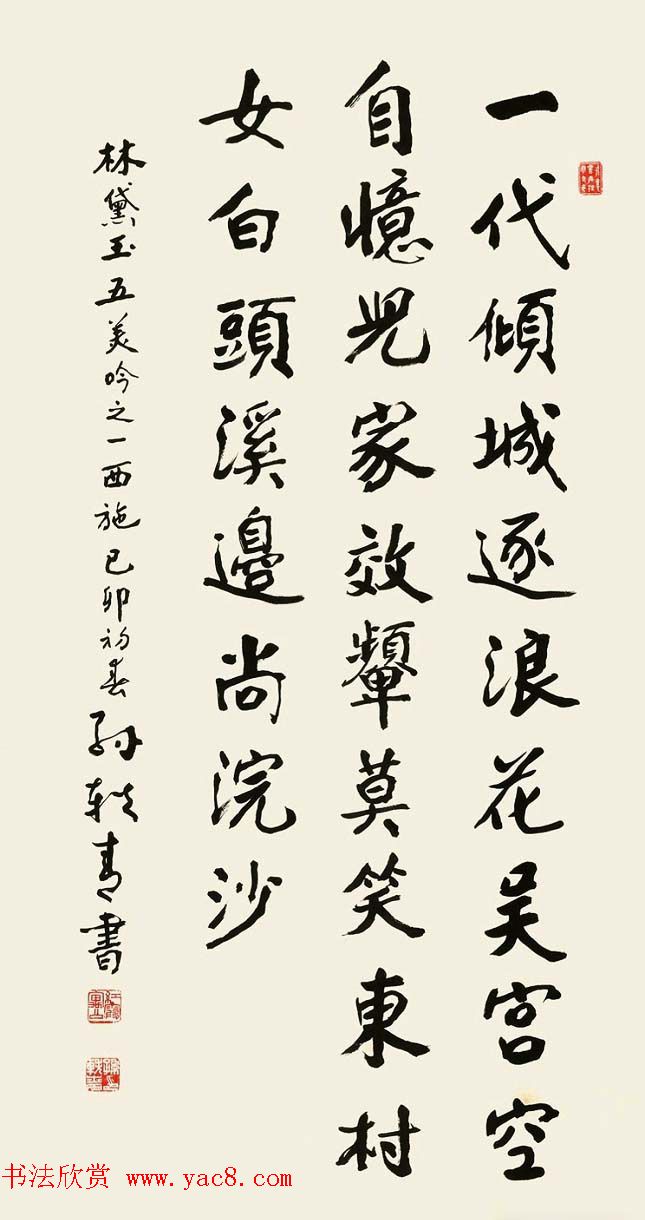 一代傾城逐浪花吴宫空
自憶兒家效顰莫笑東村
女白頭溪邊尚浣沙
林黛玉五美吟之一西施己卯初春孙轶青書
书法欣赏 www.yac8.com